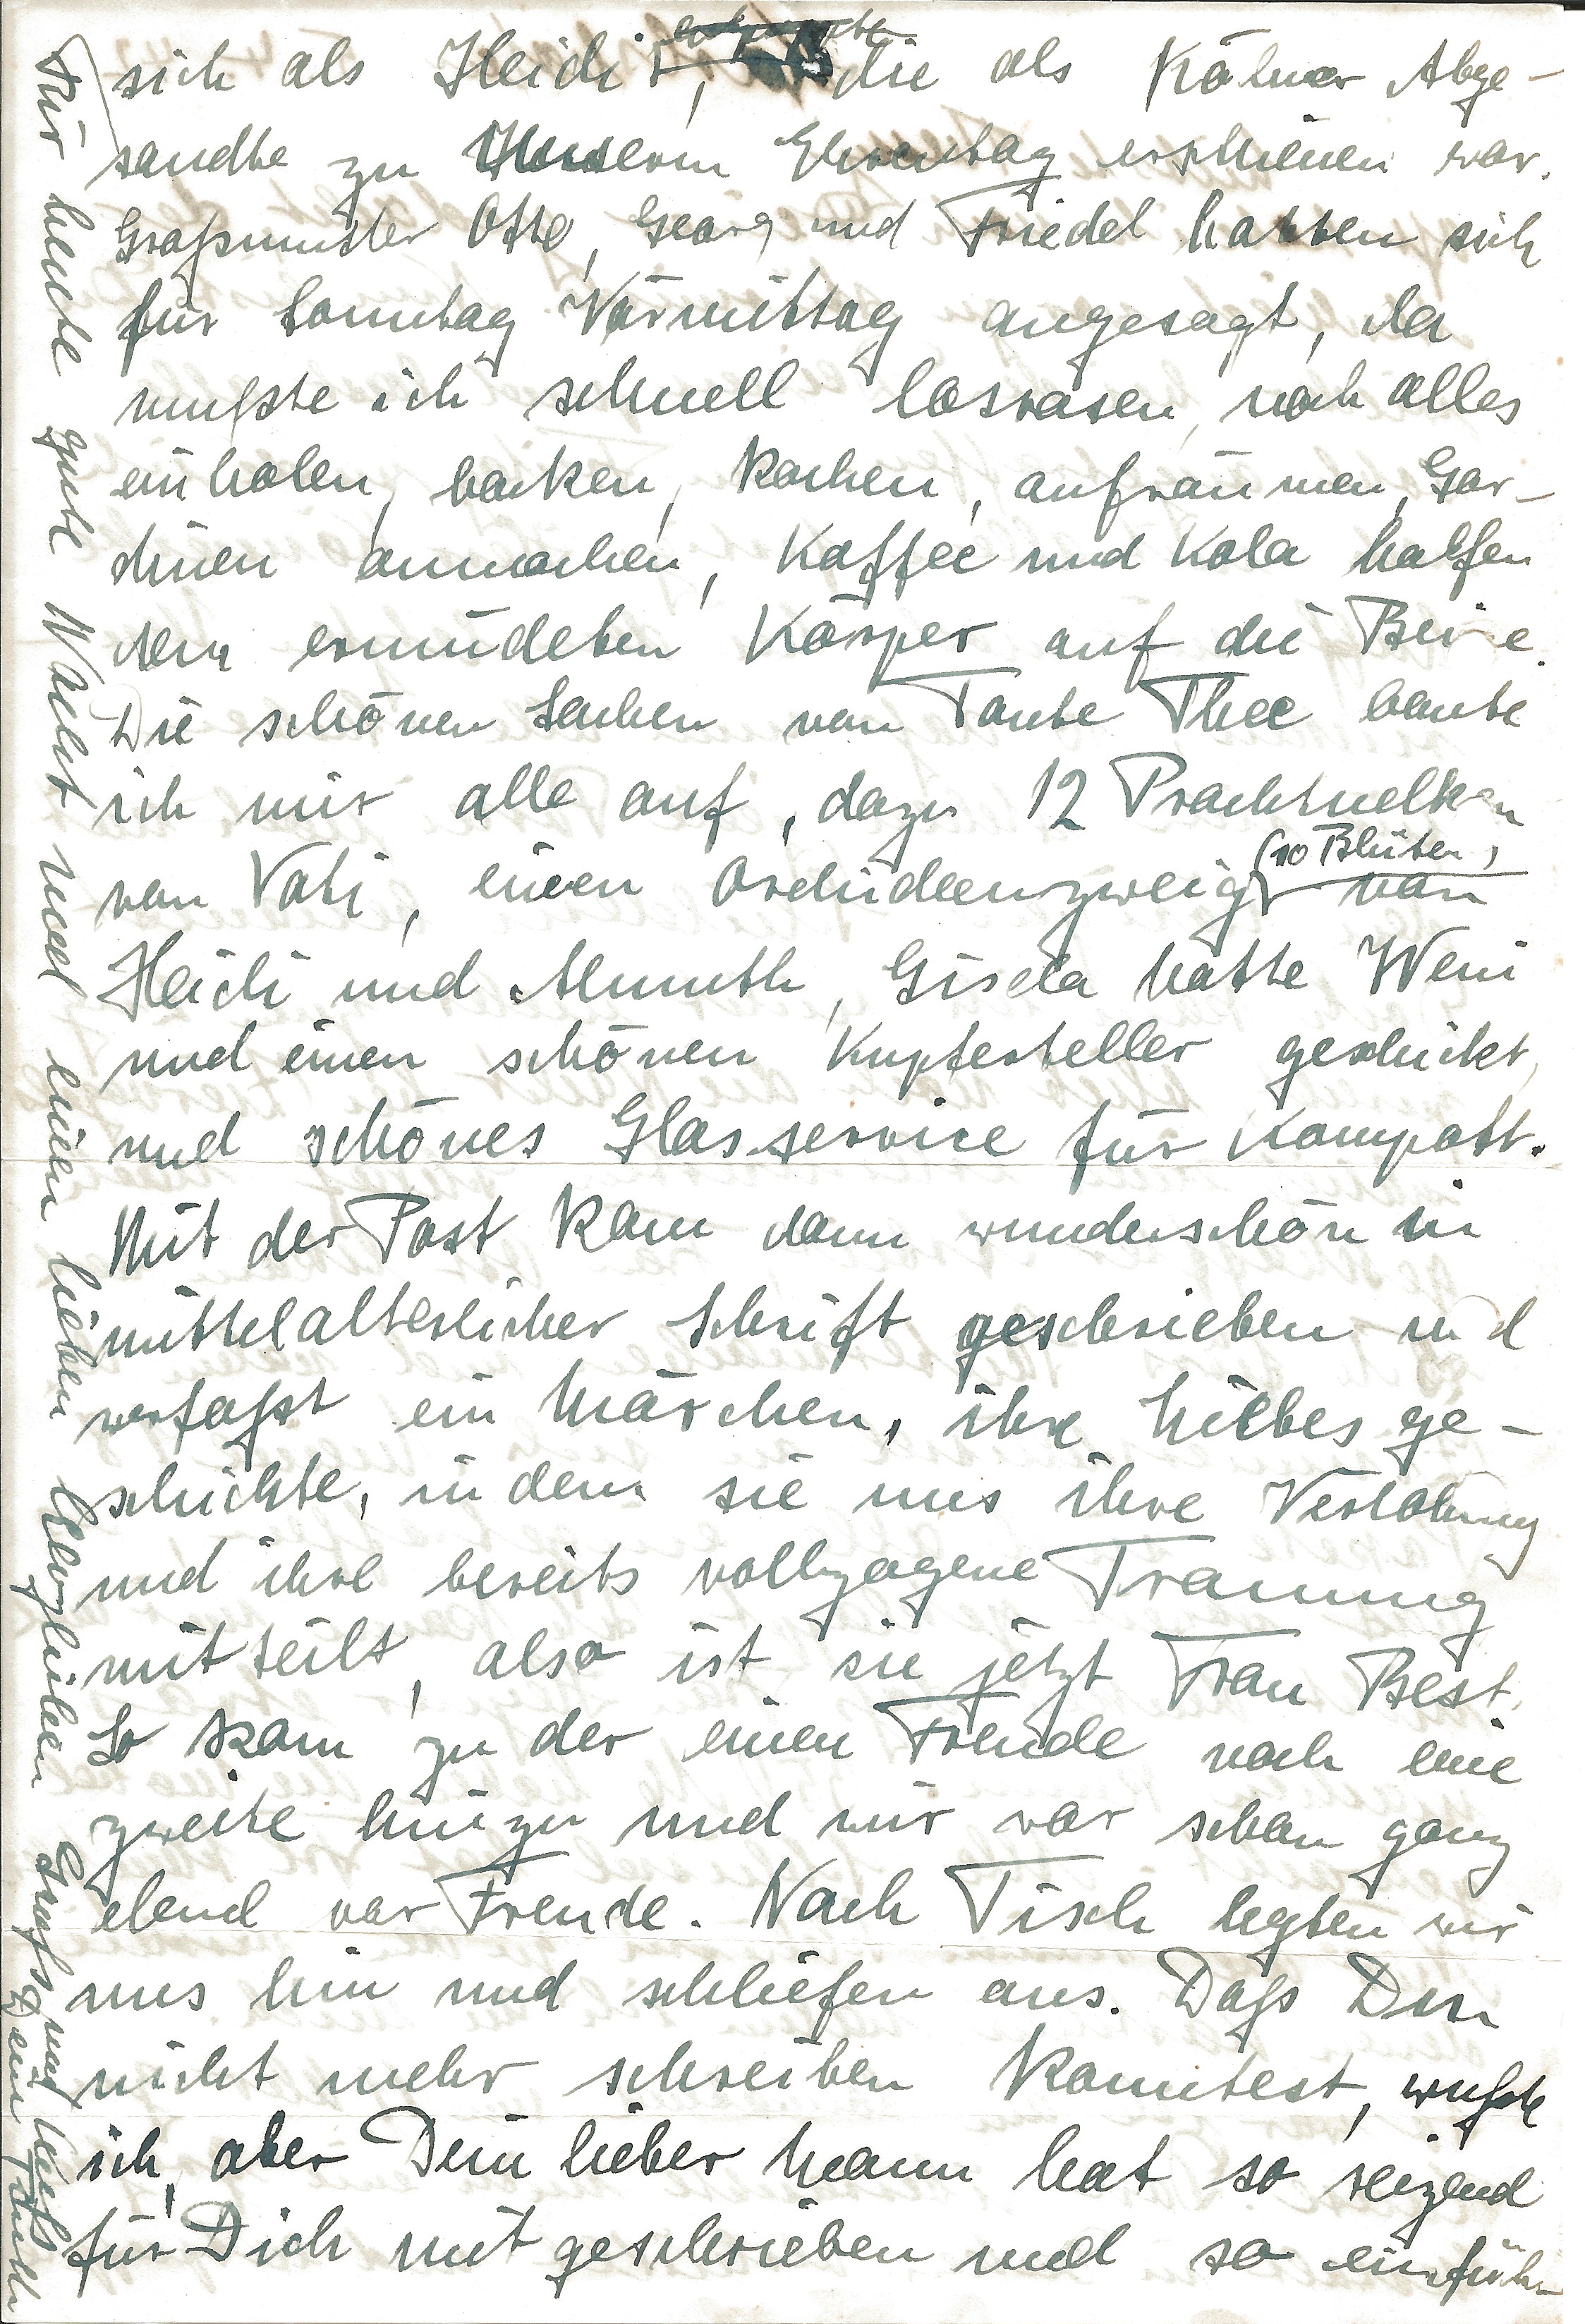 sich als Heidi, die als Kölner Abge-
sandte zu Unserem Ehrentag erschienen war.
Großmutter Otte, Georg und Friedel hatten sich
für Sonntag Vormittag angesagt, da
mußte ich schnell losrasen, noch alles
einholen, backen, kochen, aufräumen, Gar-
dinen anmachen, Kaffee und Kola halfen
dem ermüdeten Körper auf die Beine.
Die schönen Sachen von Tante Thee baute
ich mir alle auf, dazu 12 Prachtnelken
von Vati, einen Orchideenzweig (10 Blüten) von
Heidi und Almuth, Gisela hatte Wein
und einen schönen Kupferteller geschickt,
und schönes Glasservice für Kompott.
Mit der Post kam dann wunderschön in
mittelalterlicher Schrift geschrieben und
verfaßt ein Märchen, ihre Liebesge-
schichte, in dem sie uns ihre Verlobung
und ihre bereits vollzogene Trauung
mitteilt, also ist sie jetzt Frau Best.
So kam zu der einen Freude noch eine
zweite hinzu und mir war schon ganz
elend vor Freude. Nach Tisch legten wir
uns hin und schliefen aus. Daß Du
nicht mehr schreiben konntest, wußte
ich, aber Dein lieber Mann hat so reizend
für Dich mit geschrieben und so einfühl
Für heute gute Nacht und einen lieben herzlichen Gruß und Kuß
Deine